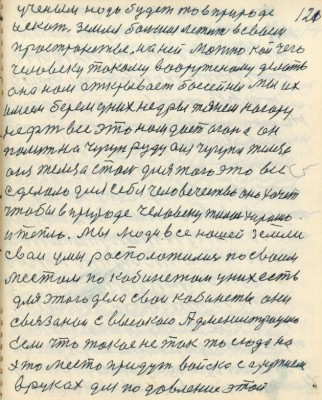 120
ученым надо будет то в природе
искат. Земля большая летит в своем
пространстве, на ней можно кой чего
человеку такому вооруженому делать
она нам открывает басейны мы их
имеем берем у них недры тянем на гору
нефт все это нам дает огонь он
палит на чугун руду а из чугуна железо
а из железа стал для того это все
сделано для себя человечество оно хочет
чтобы в природе человеку жилос хорошо
и тепло. Мы люди все нашей земли
свои умы расположили по своим
местам по кабинетам у них есть
для этого дела свои кабинеты они
связаны с высокою Администрацию
если что такое не так то сюда на
это место придут войска с оружием
в руках для подовление этой